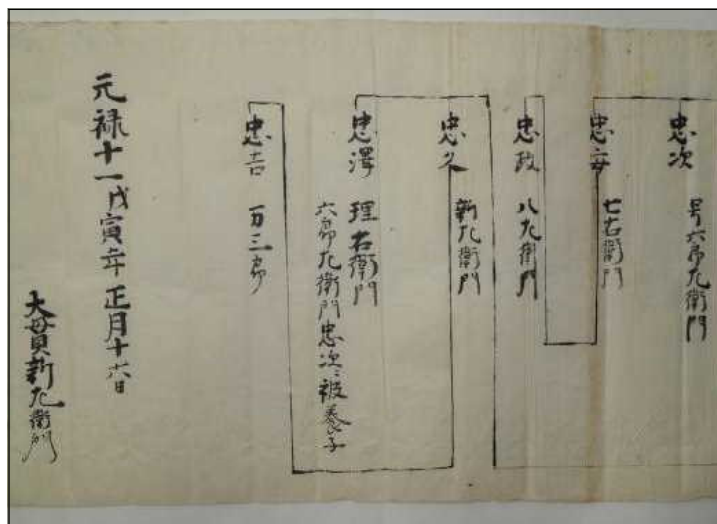 忠次
号六郎左衛門
忠安
七右衛門
忠政
八左衛門
忠久
新左衛門
忠澤
理右衛門
六郎左衛門忠次ニ被養子
忠吉
万三郎
元禄十一戊寅年正月十六日
大貫新左衛門